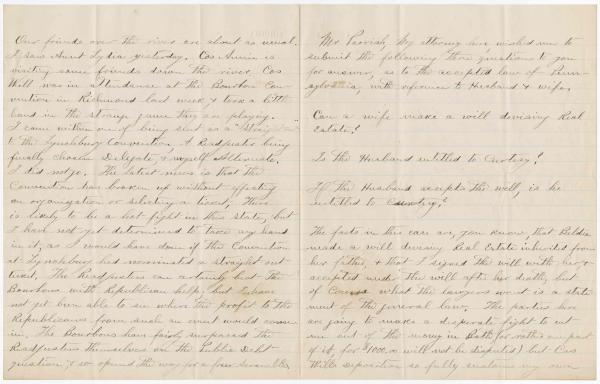 Our friends over the river are about as usual.
I saw Aunt Lydia yesterday. Cos Annie is
visiting some friends down the river. Cos
Will was in attendance at the Bourbon Con-
vention in Richmond last week & took a little
hand in the strange game they are playing.
I came within one of being sent as a "straight out"
to the Lynchburg Convention. A Readjuster being
finally chosen Delegate, & myself Alternate.
I did not go. The latest news is that the
Convention has broken up without effecting
an organization or selecting a ticket. There
is likely to be a hot fight in this state, but
I have not yet determined to take any hand
in it, as I would have done if the Convention
at Lynchburg had nominated a straight out
ticket. The Readjusters can certainly beat the
Bourbons with Republican help, but I have
not yet been able to see where the profit to the
Republicans from such an event would come
in. The Bourbons have fairly surpassed the
Readjusters themselves on the Public Debt
question, & so opened the way for a free scramble
Mr. Parrish, my attorney here, wished me to
submit the following three questions to you
for answer, as to the accepted law of Penn-
sylvania, with reference to Husband & wife.
Can a wife make a will devising Real
Estate?
Is the Husband entitled to Curtesy?
If the Husband accepts the will, is he
entitled to Curtesy?
The facts in this case are, you know, that
made a will devising Real Estate inherited from
her father, & that I signed the will with her &
accepted under the will after her death, but
of Course what the lawyers want is a state
ment of the general law. The parties here
are going to make a desperate fight to cut
me out of the money in Bath, (or rather on part
of it, for $1000.00 will not be disputed) but Cos
Will's deposition so fully sustains my own